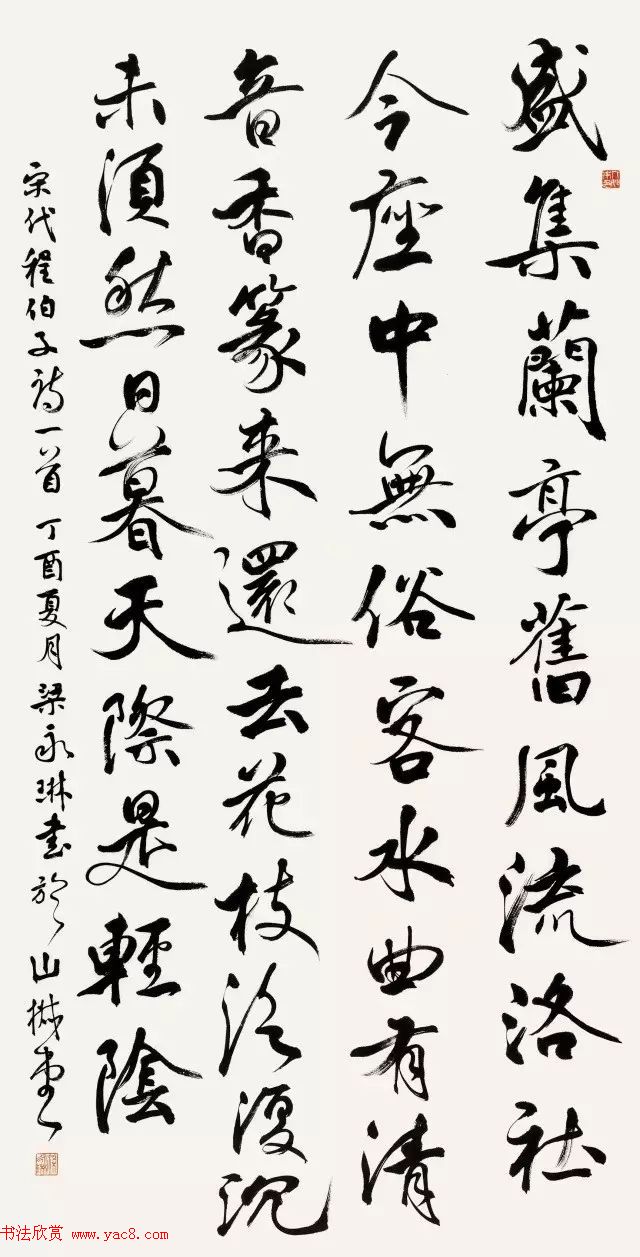 盛集蘭亭舊風流洛社
今座中無俗客水曲有清
音香篆來還去花枝泛復沉
未須愁日暮天際是輕陰
宋代程伯子詩一首丁酉夏月梁永琳書於山堂
书法欣赏 www.yac8.com